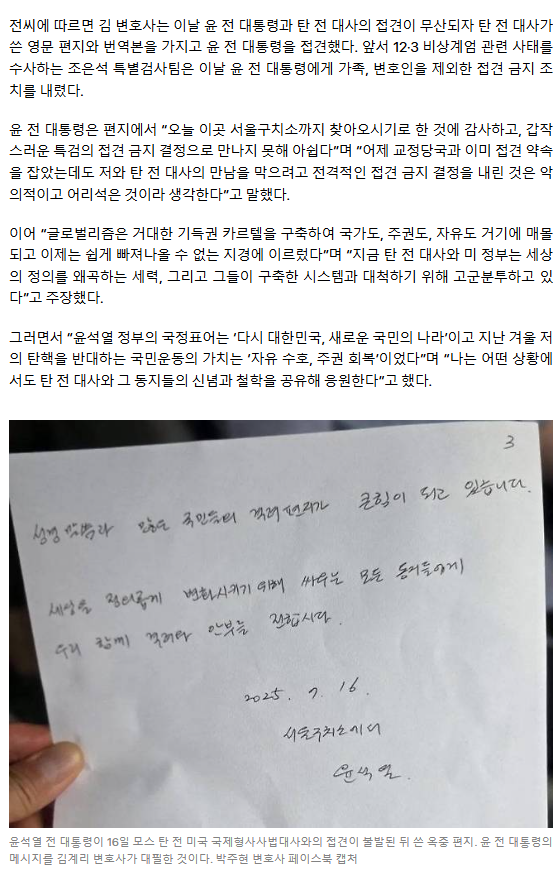 전씨에 따르면 김 변호사는 이날 윤 전 대통령과 탄 전 대사의 접견이 무산되자 탄 전 대사가
쓴 영문 편지와 번역본을 가지고 윤 전 대통령을 접견했다. 앞서 12·3 비상계엄 관련 사태를
수사하는 조은석 특별검사팀은 이날 윤 전 대통령에게 가족, 변호인을 제외한 접견 금지 조
치를 내렸다.
윤 전 대통령은 편지에서 “오늘 이곳 서울구치소까지 찾아오시기로 한 것에 감사하고, 갑작
스러운 특검의 접견 금지 결정으로 만나지 못해 아쉽다”며 “어제 교정당국과 이미 접견 약속
을 잡았는데도 저와 탄 전 대사의 만남을 막으려고 전격적인 접견 금지 결정을 내린 것은 악
의적이고 어리석은 것이라 생각한다”고 말했다.
이어 “글로벌리즘은 거대한 기득권 카르텔을 구축하여 국가도, 주권도, 자유도 거기에 매몰
되고 이제는 쉽게 빠져나올 수 없는 지경에 이르렀다”며 “지금 탄 전 대사와 미 정부는 세상
의 정의를 왜곡하는 세력, 그리고 그들이 구축한 시스템과 대척하기 위해 고군분투하고 있
다”고 주장했다.
그러면서 “윤석열 정부의 국정표어는 ‘다시 대한민국, 새로운 국민의 나라’이고 지난 겨울 저
의 탄핵을 반대하는 국민운동의 가치는 ‘자유 수호, 주권 회복’이었다”며 “나는 어떤 상황에
서도 탄 전 대사와 그 동지들의 신념과 철학을 공유해 응원한다”고 했다.
3
성경 말씀과 많은 국민들의 격려편지가 큰힘이 되고 있습니다.
세상을 정의롭게 변화시키기 위해 싸우는 모든 동지들에게
우리 함께 격려와 안부를 전합시다.
2025. 7. 16.
서울구치소에서
윤석열.
윤석열 전 대통령이 16일 모스 탄 전 미국 국제형사사법대사와의 접견이 불발된 뒤 쓴 옥중 편지. 윤 전 대통령의
메시지를 김계리 변호사가 대필한 것이다. 박주현 변호사 페이스북 캡처